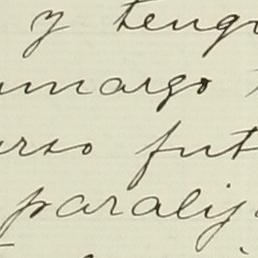 y teng
margo
rso fut
paralij